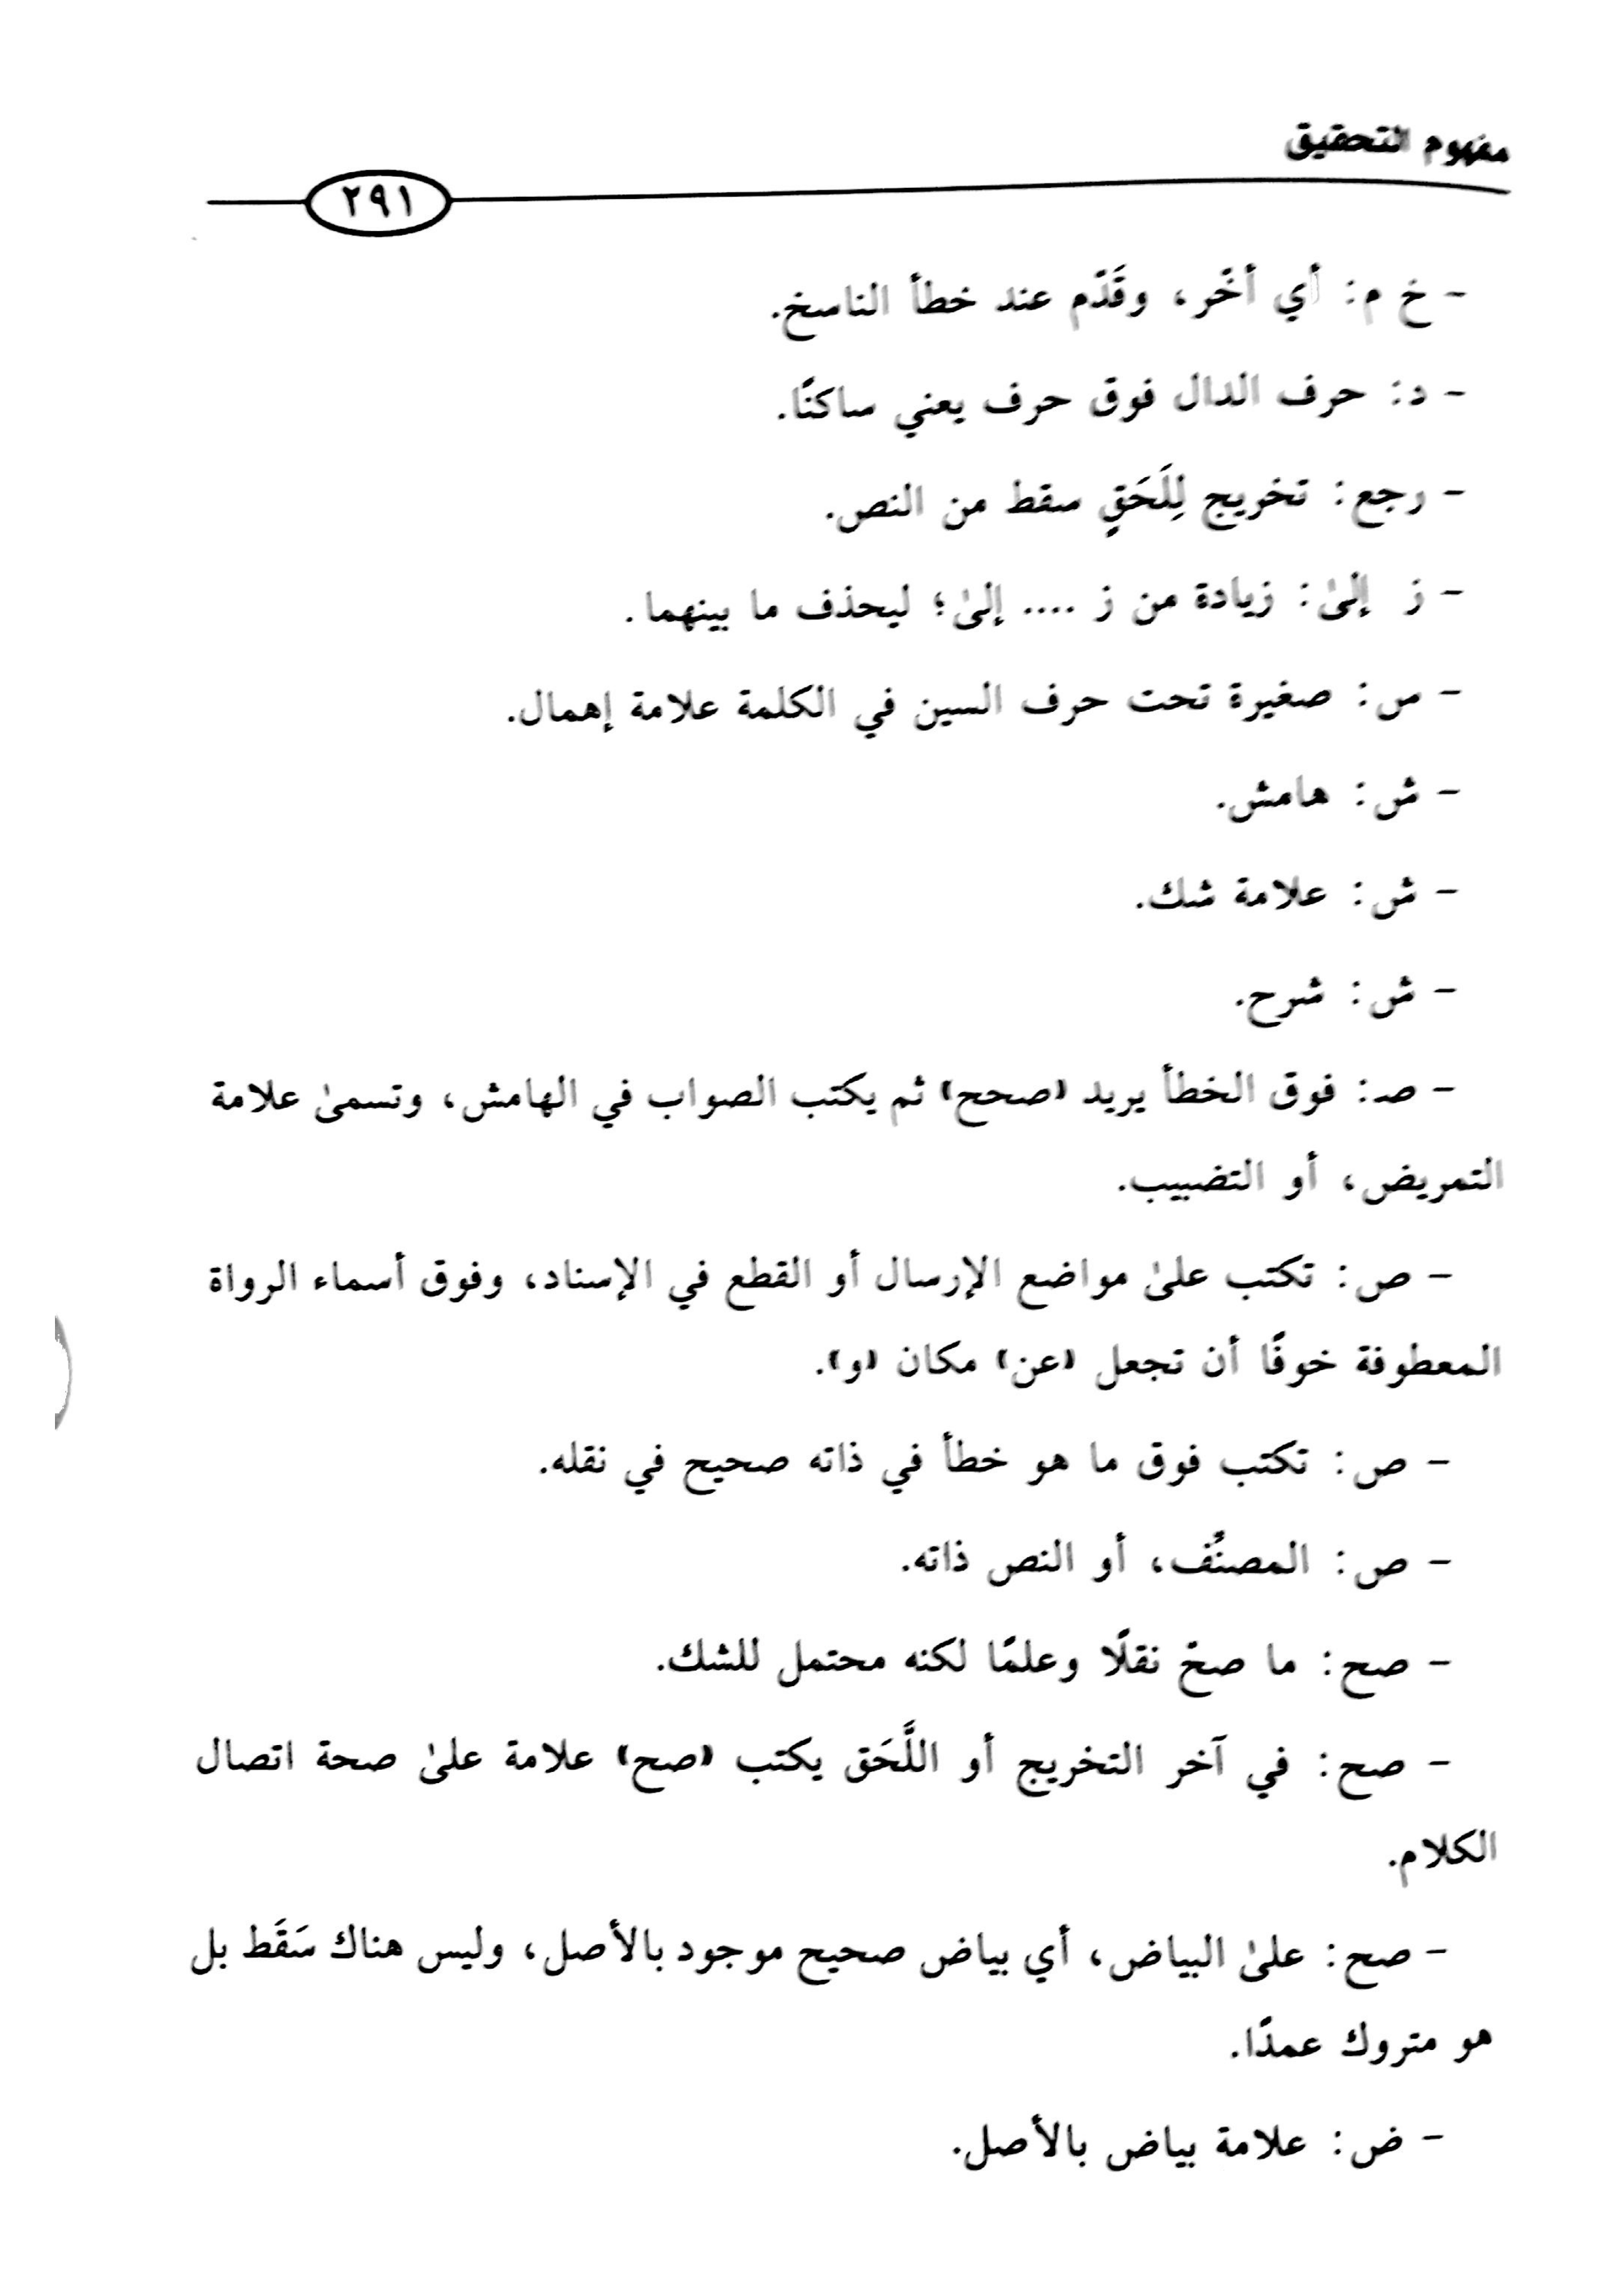 مفهوم التحقيق
٢٩١
- خ م: أي أخّر، وقَدّم عند خطأ الناسخ.
- د: حرف الدال فوق حرف يعني ساكنًا.
- رجع: تخريج لِلَحَقٍ سقط من النص.
- ز إلىٰ: زيادة من ز .... إلىٰ؛ ليحذف ما بينهما.
- س: صغيرة تحت حرف السين في الكلمة علامة إهمال.
- ش: هامش.
- ش: علامة شك.
- ش: شرح.
- صـ: فوق الخطأ يريد (صحح) ثم يكتب الصواب في الهامش، وتسمىٰ علامة
التمريض، أو التضبيب.
- ص: تكتب علىٰ مواضع الإرسال أو القطع في الإسناد، وفوق أسماء الرواة
المعطوفة خوفًا أن تجعل (عن) مكان (و).
- ص: تكتب فوق ما هو خطأ في ذاته صحيح في نقله.
- ص: المصنِّف، أو النص ذاته.
- صح: ما صحّ نقلًا وعلمًا لكنه محتمل للشك.
- صح: في آخر التخريج أو اللَّحَق يكتب (صح) علامة علىٰ صحة اتصال
الكلام.
- صح: علىٰ البياض، أي بياض صحيح موجود بالأصل، وليس هناك سَقَط بل
هو متروك عمدًا.
- ض: علامة بياض بالأصل.